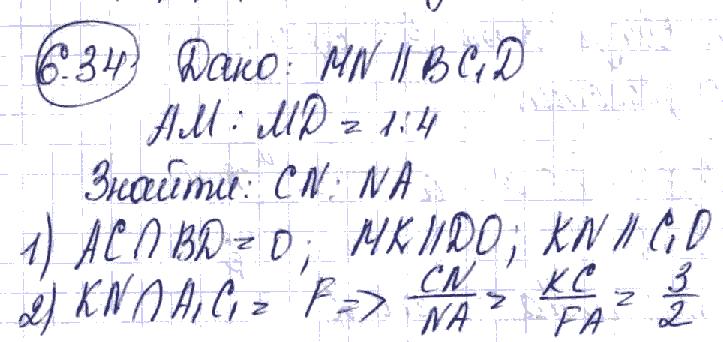 6.34 Дано: MN || BC₁D
AM : MD = 1:4
Знайти: CN : NA
1) AC ∩ BD = O; MK || DO; KN || C₁O
2) KN ∩ A₁C₁ = F => CN/NA = KC/FA = 3/2